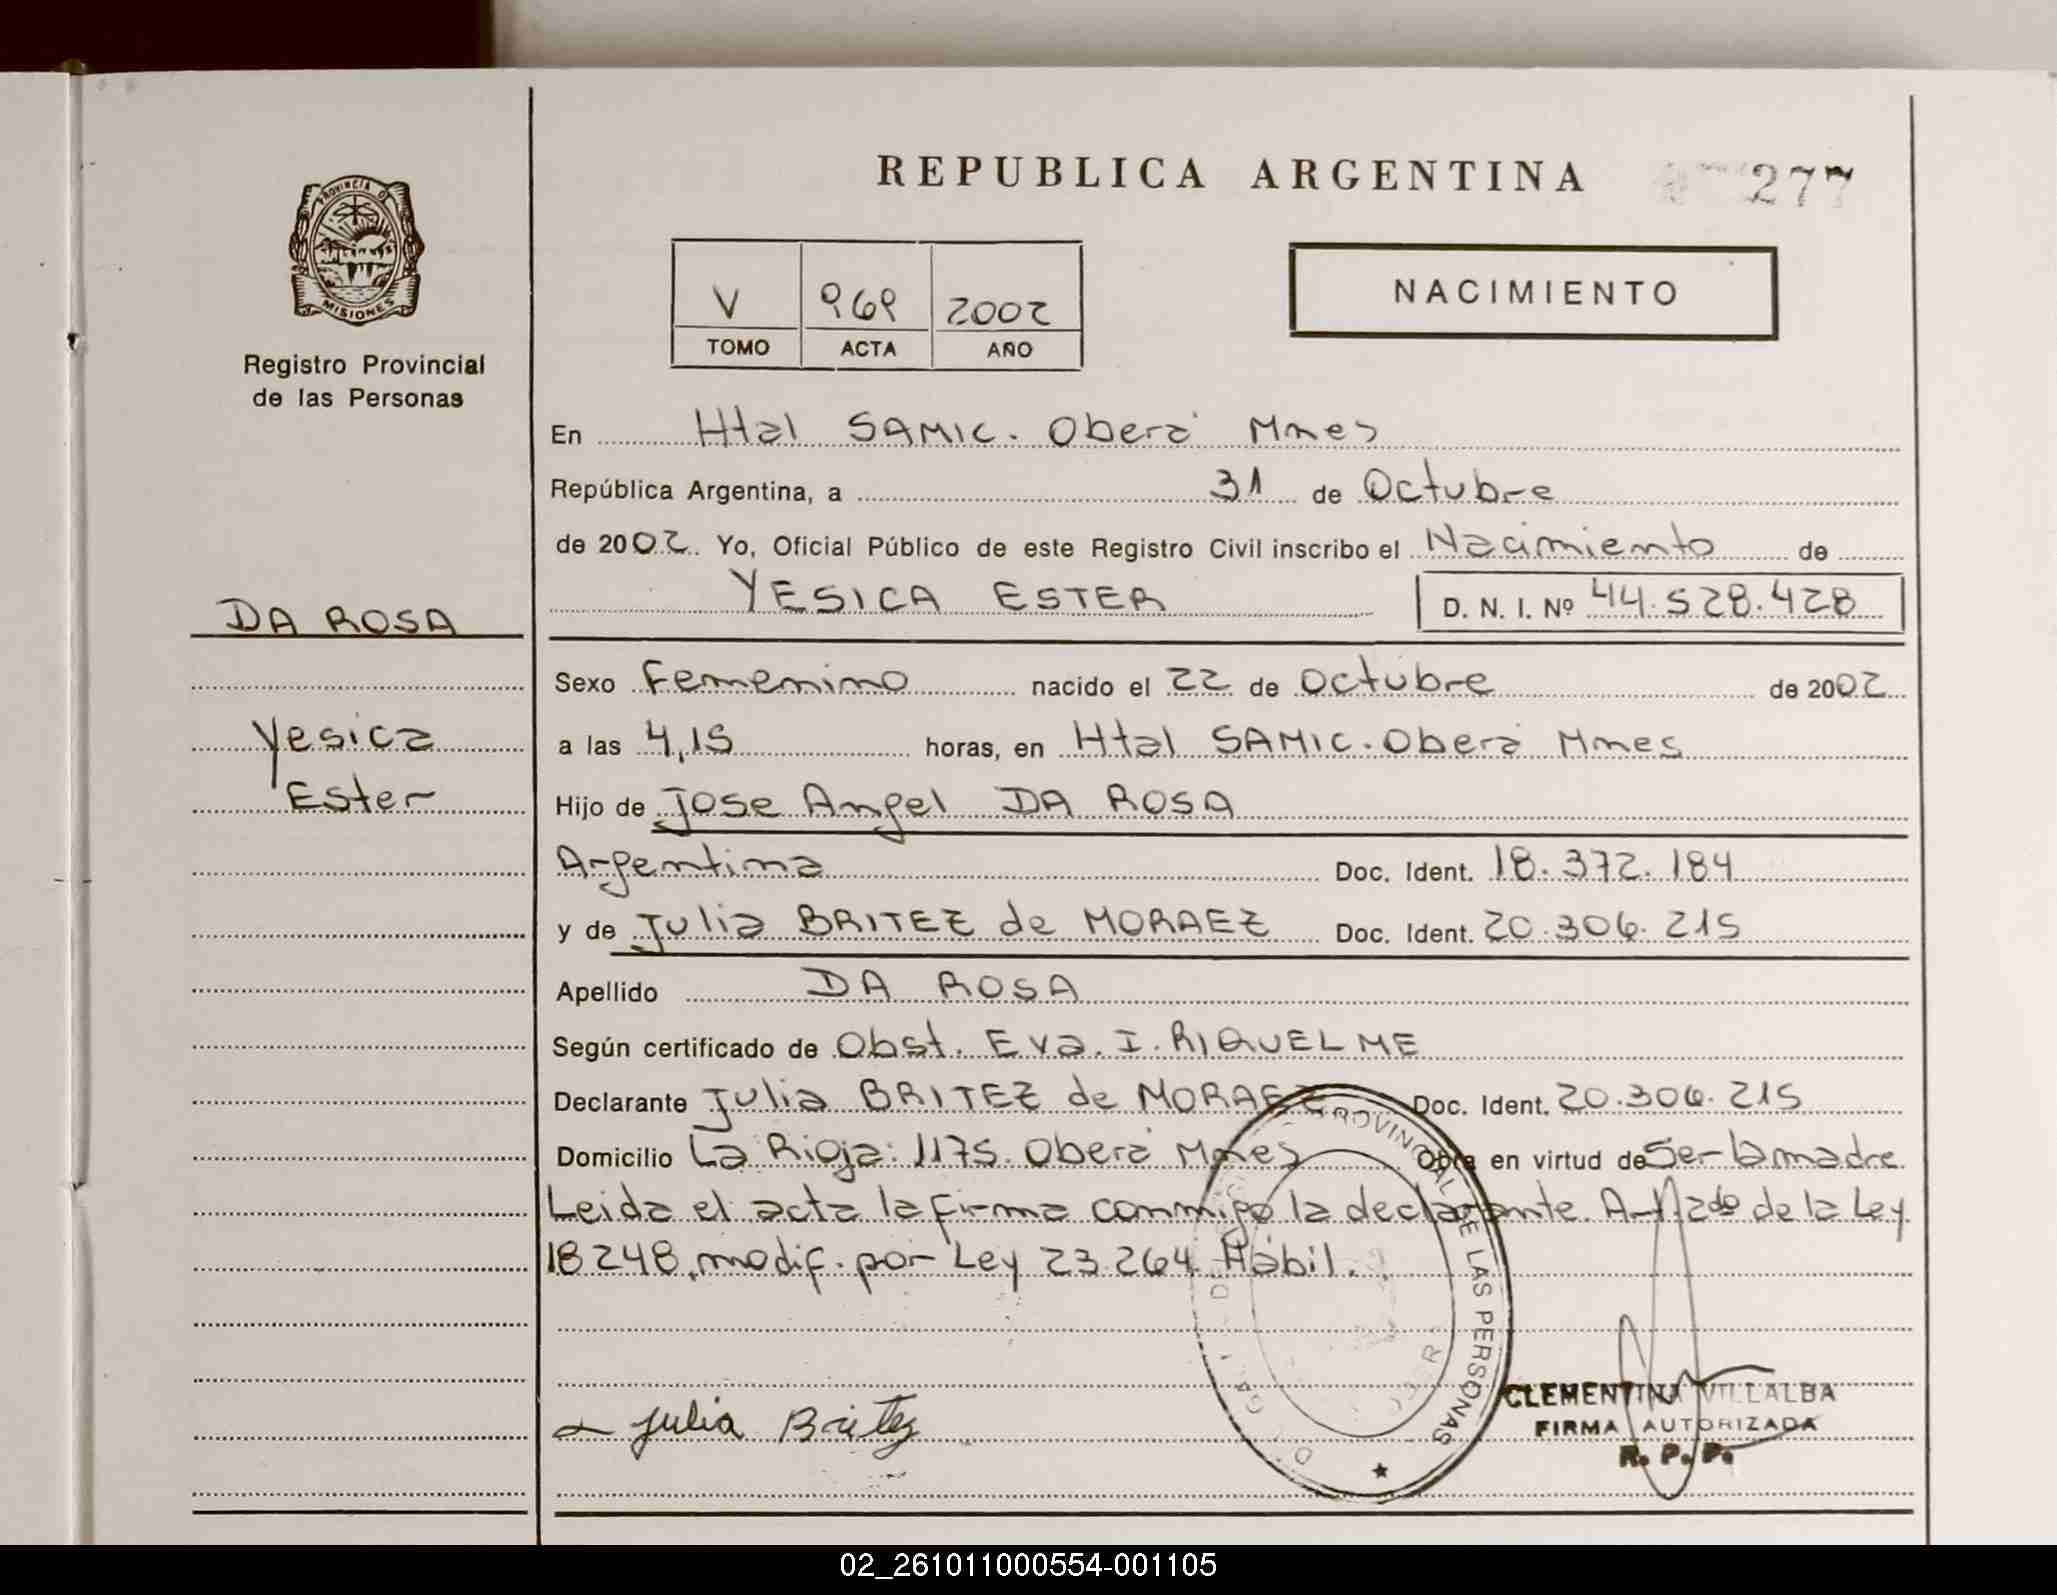 REPUBLICA ARGENTINA
277
PROVINCIA DE
MISIONES
Registro Provincial
de las Personas
V 969 2002
TOMO ACTA AÑO
NACIMIENTO
En Htal SAMIC. Oberá Mnes
República Argentina, a 31 de Octubre
de 2002. Yo, Oficial Público de este Registro Civil inscribo el Nacimiento de
YESICA ESTER D. N. I. Nº 44.528.428
DA ROSA
Yesica
Ester
Sexo Femenino nacido el 22 de Octubre de 2002
a las 4,15 horas, en Htal SAMIC. Oberá Mnes
Hijo de Jose Angel DA ROSA
Argentina Doc. Ident. 18.372.184
y de Julia BRITEZ de MORAEZ Doc. Ident. 20.306.215
Apellido DA ROSA
Según certificado de Obst. Eva. I. RIQUELME
Declarante Julia BRITEZ de MORAEZ Doc. Ident. 20.306.215
Domicilio La Rioja: 1175. Oberá Mnes Obra en virtud de Ser la madre.
Leida el acta la firma conmigo la declarante. Art 2do de la Ley
18248, modif. por Ley 23.264. Hábil.
PROVINCIAL DE LAS PERSONAS
Julia Britez
CLEMENTINA VILLALBA
FIRMA AUTORIZADA
R. P. P.
02_261011000554-001105